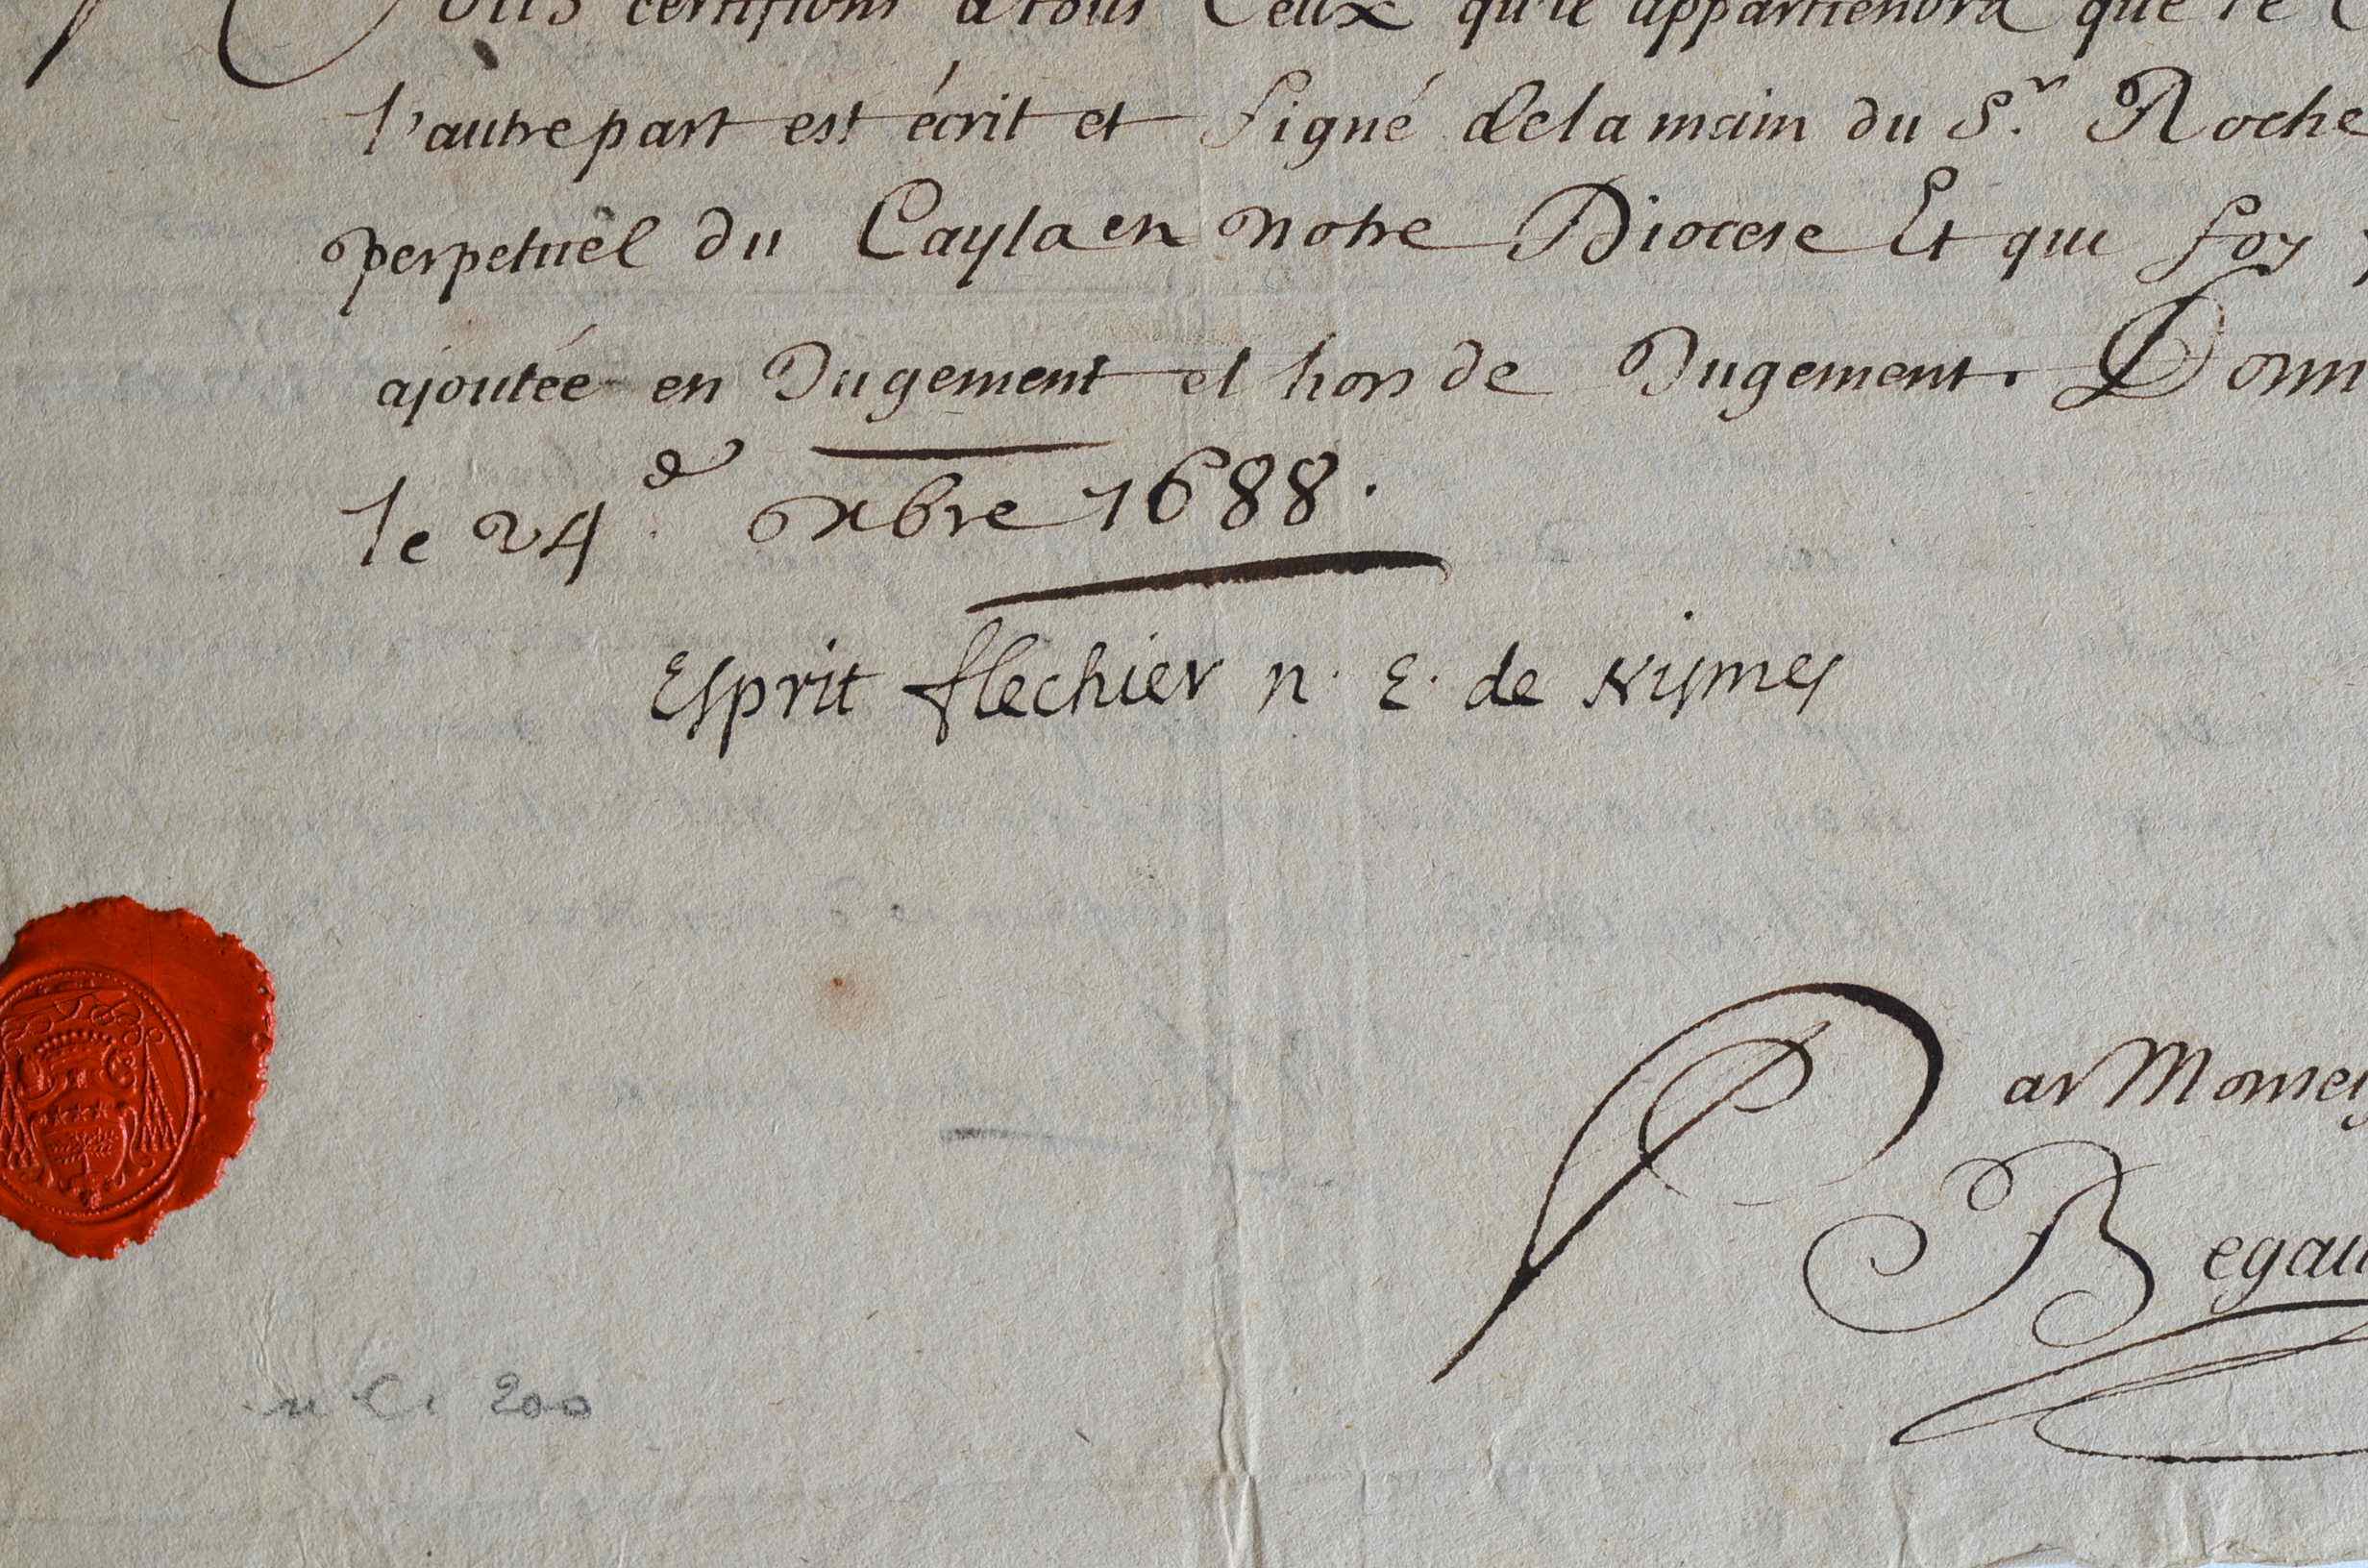 Nous certifions a tous Ceux qu'il appartiendra que le C
l'autre part est écrit et signé de la main du S.r Roche
perpetuel du Cayla en notre Diocese Et que foy
ajoutée en Jugement et hors de Jugement. Donn
le 24e xbre 1688.
Esprit flechier n. E. de Nismes
Par Monsei
Begau
n C. 200